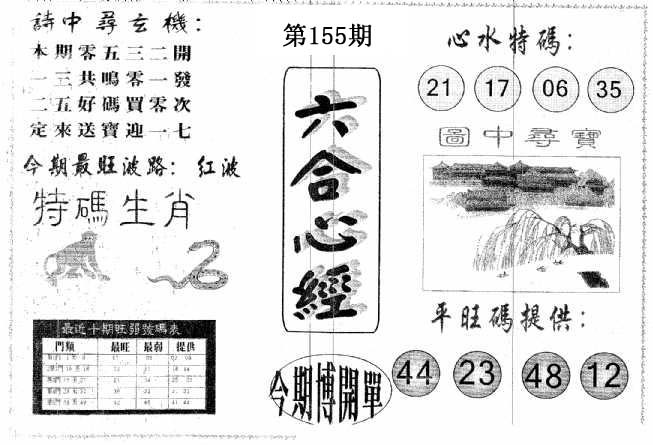 詩中尋玄機:
本期零五三二開
一三共鳴零一發
二五好碼買零次
定來送寶迎一七
今期最旺波路: 红波
特碼生肖
最近十期旺弱號碼表
門類 最旺 最弱 提供
第155期
六合心經
今期博開單
心水特碼:
21 17 06 35
圖中尋寶
平旺碼提供:
44 23 48 12